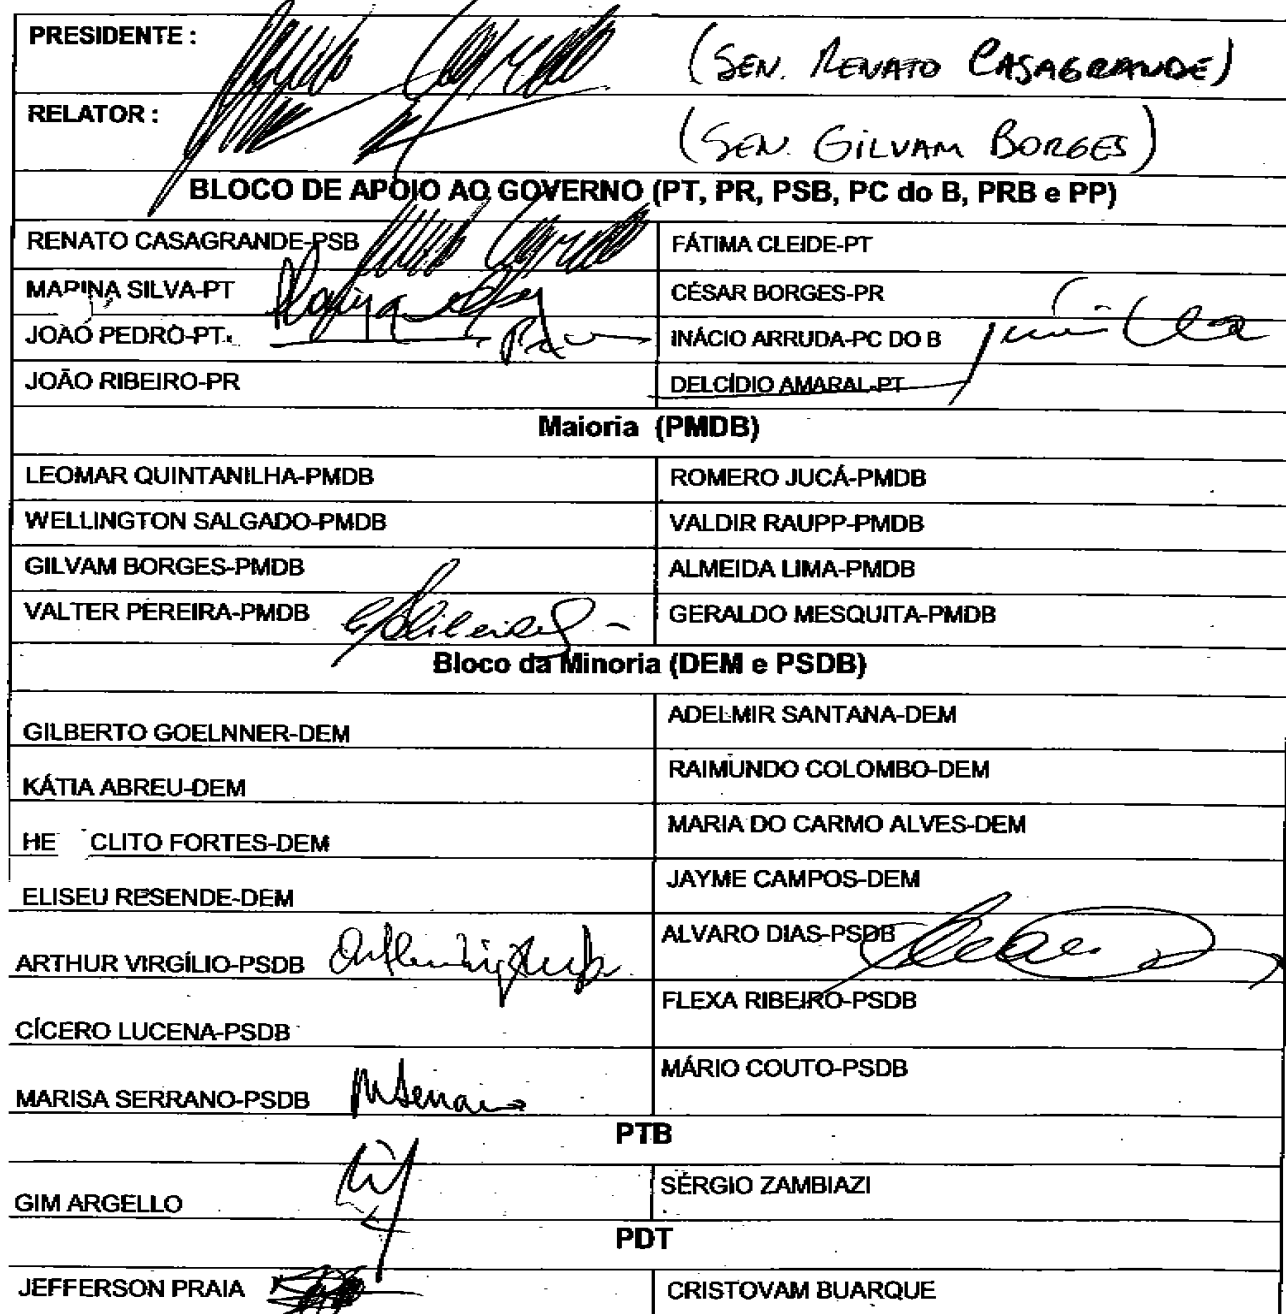 PRESIDENTE :
(SEN. RENATO CASAGRANDE)
RELATOR :
(SEN. GILVAM BORGES)
BLOCO DE APOIO AO GOVERNO (PT, PR, PSB, PC do B, PRB e PP)
RENATO CASAGRANDE-PSB
FÁTIMA CLEIDE-PT
MARINA SILVA-PT
CÉSAR BORGES-PR
JOÃO PEDRO-PT
INÁCIO ARRUDA-PC DO B
JOÃO RIBEIRO-PR
DELCÍDIO AMARAL-PT
Maioria (PMDB)
LEOMAR QUINTANILHA-PMDB
ROMERO JUCÁ-PMDB
WELLINGTON SALGADO-PMDB
VALDIR RAUPP-PMDB
GILVAM BORGES-PMDB
ALMEIDA LIMA-PMDB
VALTER PEREIRA-PMDB
GERALDO MESQUITA-PMDB
Bloco da Minoria (DEM e PSDB)
GILBERTO GOELNNER-DEM
ADELMIR SANTANA-DEM
KÁTIA ABREU-DEM
RAIMUNDO COLOMBO-DEM
HE CLITO FORTES-DEM
MARIA DO CARMO ALVES-DEM
ELISEU RESENDE-DEM
JAYME CAMPOS-DEM
ARTHUR VIRGÍLIO-PSDB
ALVARO DIAS-PSDB
CÍCERO LUCENA-PSDB
FLEXA RIBEIRO-PSDB
MARISA SERRANO-PSDB
MÁRIO COUTO-PSDB
PTB
GIM ARGELLO
SÉRGIO ZAMBIAZI
PDT
JEFFERSON PRAIA
CRISTOVAM BUARQUE